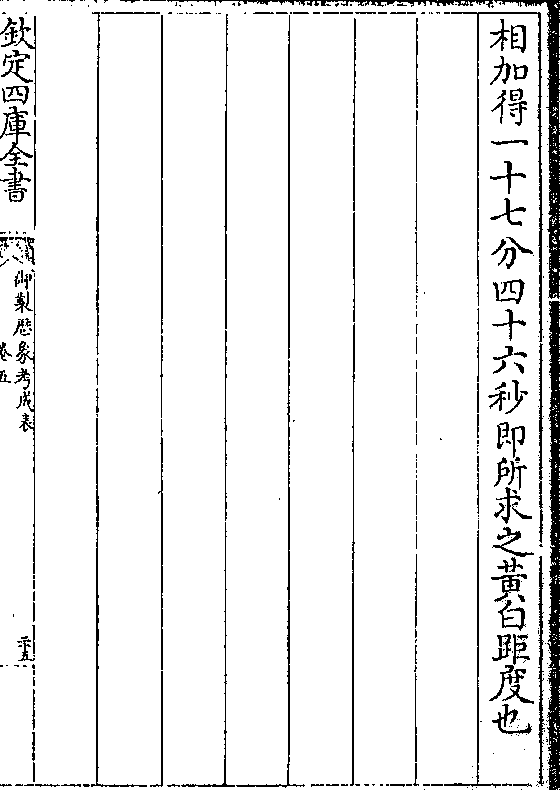 相加得一十七分四十六秒即所求之黃白距度也
欽定四庫全書
御製歷象考成表
卷五
二十五